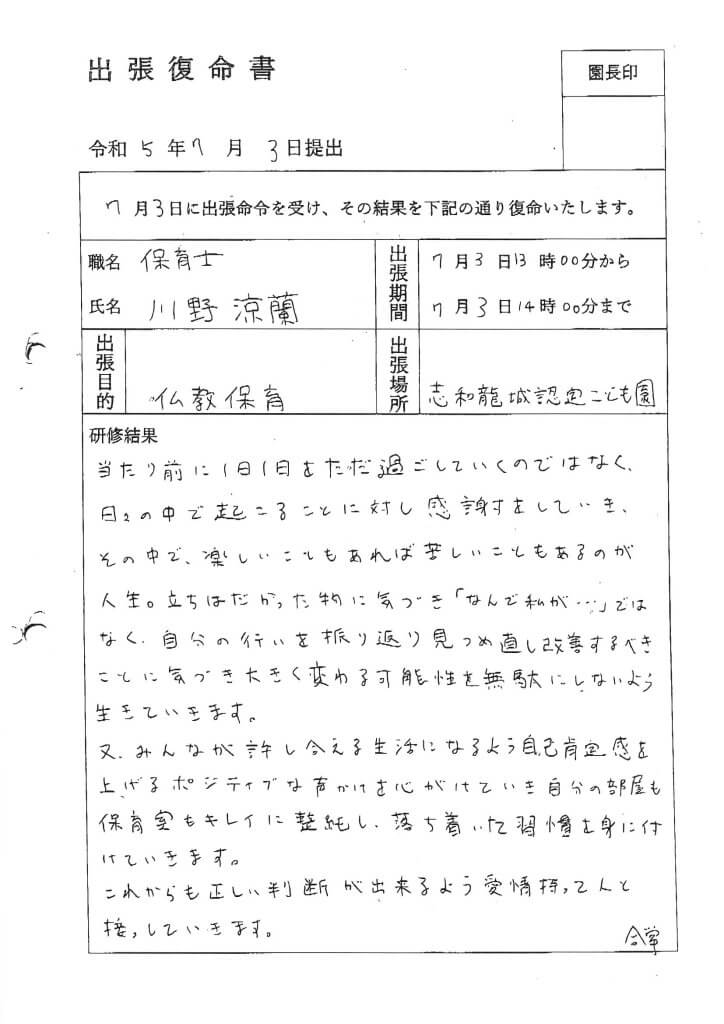 出張復命書
園長印
令和5年7月3日提出
7月3日に出張命令を受け、その結果を下記の通り復命いたします。
職名 保育士
氏名 川野 涼蘭
出張期間
7月3日13時00分から
7月3日14時00分まで
出張目的
仏教保育
出張場所
志和龍城認定こども園
研修結果
当たり前に1日1日をただ過ごしていくのではなく、
日々の中で起こることに対し感謝をしていき、
その中で、楽しいこともあれば苦しいこともあるのが
人生。立ちはだかった物に気づき「なんで私が…」では
なく、自分の行いを振り返り見つめ直し改善するべき
ことに気づき大きく変わる可能性を無駄にしないよう
生きていきます。
又、みんなが許し合える生活になるよう自己肯定感を
上げるポジティブな声かけを心がけていき自分の部屋も
保育室もキレイに整頓し、落ち着いた習慣を身に付
けていきます。
これからも正しい判断が出来るよう愛情持って人と
接っしていきます。
合掌